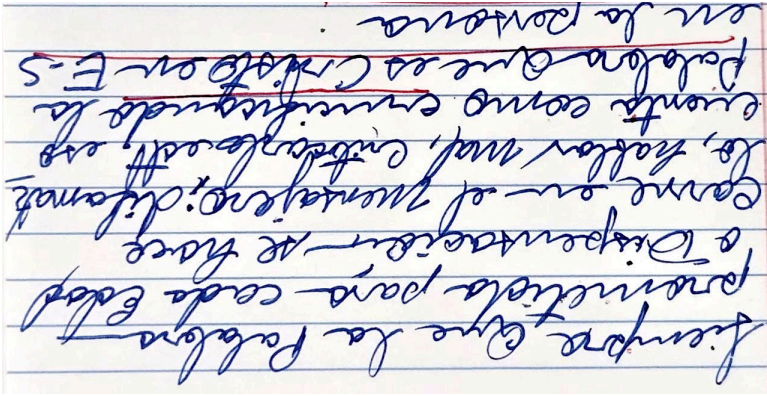 Siempre que la Palabra
prometida para cada Edad
o Dispensación se hace
carne en el mensajero; difamar
lo, hablar mal, criticarle ett, eso
cuenta como crucificando la
Palabra que es Cristo en E-S
en la persona